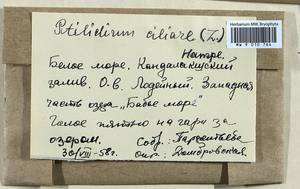 Herbarium MW, Bryophyta
MW 9 010 764
Ptilidium ciliare (L.)
Hampe.
Белое море. Кандалакшский
залив. О-в. Лодейный. Западная
часть озера „Бабье море"
Целое пятно на гари за
озером. Собр:
30/VIII-58г. опр: Домбровская.